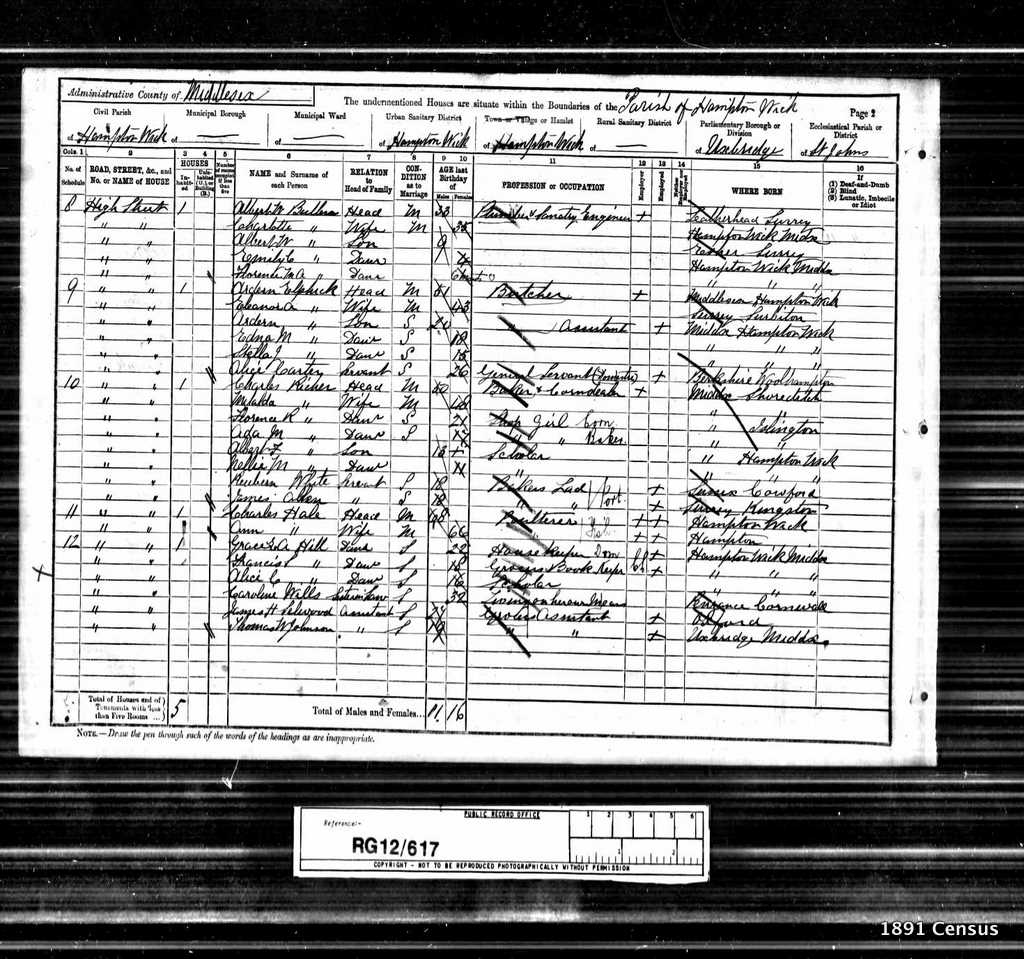 Administrative County of Middlesex
The undermentioned Houses are situate within the Boundaries of the Parish of Hampton Wick
Page 2
Civil Parish
of Hampton Wick
Municipal Borough
of
Municipal Ward
of
Urban Sanitary District
of Hampton Wick
Town or Village or Hamlet
of Hampton Wick
Rural Sanitary District
of
Parliamentary Borough or Division
of Uxbridge
Ecclesiastical Parish or District
of St Johns
Cols. 1 2 3 4 5 6 7 8 9 10 11 12 13 14 15 16
No. of Schedule
ROAD, STREET, &c., and No. or NAME of HOUSE
HOUSES
Inhabited
NAME and Surname of each Person
RELATION to Head of Family
CONDITION as to Marriage
AGE last Birthday of
Males Females
PROFESSION or OCCUPATION
Employer
Employed
WHERE BORN
If
(1) Deaf-and-Dumb
(2) Blind
(3) Lunatic, Imbecile or Idiot
8 High Street 1 Albert W Head M Plumber & Sanitary Engineer + Leatherhead Surrey
" " " Charlotte " Wife M Hampton Wick Middx
" " " Albert W " Son 9 Surrey
" " " Emily C " Daur Hampton Wick Middx
" " " Florence M A " Daur " " "
9 " " 1 Ardern Head M 51 Butcher + Middlesex Hampton Wick
" " " Eleanor A " Wife M 43 Surrey Surbiton
" " " Ardern " Son S " Assistant + Middx Hampton Wick
" " " Edna M " Daur S 18 " " "
" " " Stella J " Daur S 15 " " "
" " " Alice Cartey Servant S 26 General Servant (Domestic) + Berkshire Woolhampton
10 " " 1 Charles Richer Head M Baker & Corndealer + Middx Shoreditch
" " " Wife M 48 " "
" " " Florence R " Daur S 21 Shop Girl Corn " Islington
" " " Ada M " Daur S " " Baker " "
" " " Albert F " Son Scholar " Hampton Wick
" " " Nellie M " Daur 11 " "
" " " Reuben Whyte Servant S 18 Bakers Lad + Sussex Cowford
" " " James Allen " S 18 " " + Surrey Kingston
11 " " 1 Charles Hale Head M 68 + + Hampton Wick
" " " Ann " Wife M 66 + + Hampton
12 " " 1 Grace Hill Daur S 22 Housekeeper Dom + Hampton Wick Middx
" " " Francis " Daur S 18 Grocers Book Keepr + " " "
" " " Alice C " Daur S 16 Scholar " "
" " " Caroline Wills S 52 Living on her own Means Penzance Cornwall
" " " James H Selwood Assistant S Grocers Assistant + Oxford
" " " Thomas W Johnson " S 19 " " + Uxbridge Middx
Total of Houses and of Tenements with less than Five Rooms ... 5
Total of Males and Females... 11 16
NOTE.—Draw the pen through such of the words of the headings as are inappropriate.
PUBLIC RECORD OFFICE
Reference:-
RG12/617
1 2 3 4 5 6
1 2
COPYRIGHT - NOT TO BE REPRODUCED PHOTOGRAPHICALLY WITHOUT PERMISSION
1891 Census